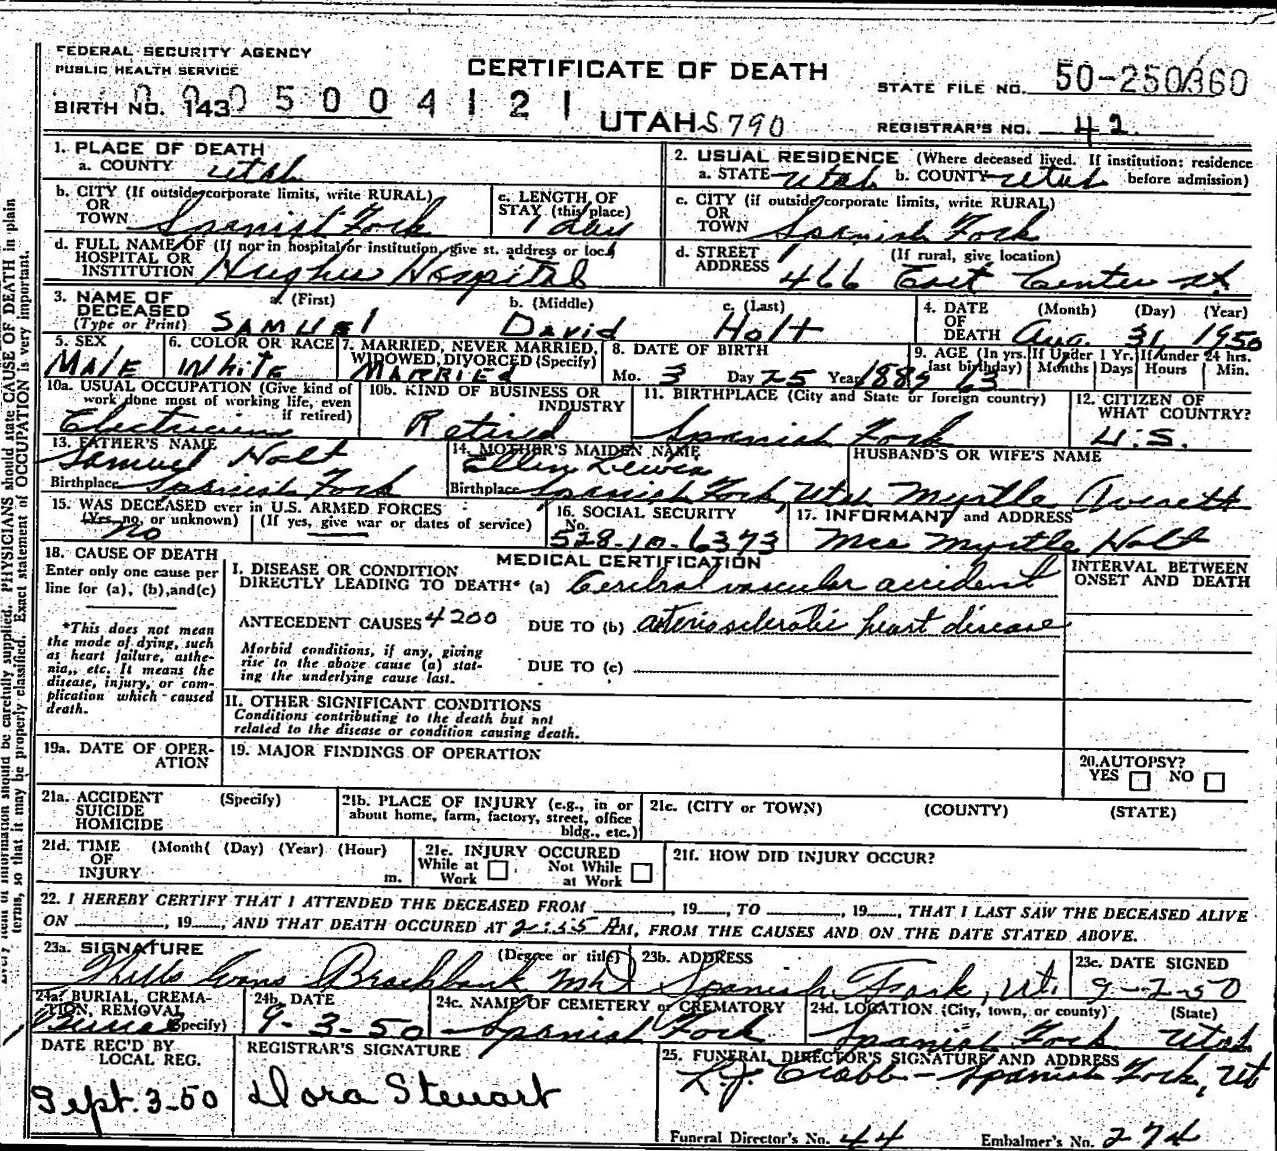 FEDERAL SECURITY AGENCY
PUBLIC HEALTH SERVICE
CERTIFICATE OF DEATH
STATE FILE NO. 50-250360
BIRTH NO. 143
0005004121
UTAH S790
REGISTRAR'S NO. 42
1. PLACE OF DEATH
a. COUNTY Utah
2. USUAL RESIDENCE (Where deceased lived. If institution: residence before admission)
a. STATE Utah b. COUNTY Utah
b. CITY (If outside corporate limits, write RURAL)
OR
TOWN Spanish Fork
c. LENGTH OF STAY (this place)
1 day
c. CITY (if outside corporate limits, write RURAL)
OR
TOWN Spanish Fork
d. FULL NAME OF (If not in hospital or institution, give st. address or loc.)
HOSPITAL OR
INSTITUTION Hughes Hospital
d. STREET ADDRESS (If rural, give location)
466 East Center St.
3. NAME OF DECEASED (Type or Print)
a. (First) b. (Middle) c. (Last)
SAMUEl David Holt
4. DATE OF DEATH (Month) (Day) (Year)
Aug. 31, 1950
5. SEX
MAlE
6. COLOR OR RACE
White
7. MARRIED, NEVER MARRIED, WIDOWED, DIVORCED (Specify)
MARRIEd
8. DATE OF BIRTH
Mo. 3 Day 25 Year
9. AGE (In yrs. last birthday) 63
If Under 1 Yr. Months Days
If under 24 hrs. Hours Min.
10a. USUAL OCCUPATION (Give kind of work done most of working life, even if retired)
Electrician
10b. KIND OF BUSINESS OR INDUSTRY
Retired
11. BIRTHPLACE (City and State or foreign country)
Spanish Fork
12. CITIZEN OF WHAT COUNTRY?
U.S.
13. FATHER'S NAME
Samuel Holt
Birthplace Spanish Fork
14. MOTHER'S MAIDEN NAME
Ellen
Birthplace Spanish Fork, Utah
HUSBAND'S OR WIFE'S NAME
Myrtle Averett
15. WAS DECEASED ever in U.S. ARMED FORCES
(Yes, no, or unknown) (If yes, give war or dates of service)
No
16. SOCIAL SECURITY No.
528-10-6373
17. INFORMANT and ADDRESS
Mrs Myrtle Holt
18. CAUSE OF DEATH
Enter only one cause per line for (a), (b), and (c)
*This does not mean the mode of dying, such as heart failure, asthenia, etc. It means the disease, injury, or complication which caused death.
MEDICAL CERTIFICATION
I. DISEASE OR CONDITION DIRECTLY LEADING TO DEATH* (a) Cerebral vascular accident
ANTECEDENT CAUSES 4200 DUE TO (b) arteriosclerotic heart disease
Morbid conditions, if any, giving rise to the above cause (a) stating the underlying cause last.
DUE TO (c)
INTERVAL BETWEEN ONSET AND DEATH
II. OTHER SIGNIFICANT CONDITIONS
Conditions contributing to the death but not related to the disease or condition causing death.
19a. DATE OF OPERATION
19. MAJOR FINDINGS OF OPERATION
20. AUTOPSY?
YES NO
21a. ACCIDENT (Specify)
SUICIDE
HOMICIDE
21b. PLACE OF INJURY (e.g., in or about home, farm, factory, street, office bldg., etc.)
21c. (CITY or TOWN) (COUNTY) (STATE)
21d. TIME (Month( (Day) (Year) (Hour)
OF
INJURY m.
21e. INJURY OCCURED
While at Work Not While at Work
21f. HOW DID INJURY OCCUR?
22. I HEREBY CERTIFY THAT I ATTENDED THE DECEASED FROM , 19 , TO , 19 , THAT I LAST SAW THE DECEASED ALIVE
ON , 19 , AND THAT DEATH OCCURED AT 2:35 AM, FROM THE CAUSES AND ON THE DATE STATED ABOVE.
23a. SIGNATURE (Degree or title)
Evans MD
23b. ADDRESS
Spanish Fork, Ut.
23c. DATE SIGNED
9-2-50
24a. BURIAL, CREMATION, REMOVAL (Specify)
Burial
24b. DATE
9-3-50
24c. NAME OF CEMETERY or CREMATORY
Spanish Fork
24d. LOCATION (City, town, or county) (State)
Spanish Fork Utah
DATE REC'D BY LOCAL REG.
Sept. 3-50
REGISTRAR'S SIGNATURE
Dora Stewart
25. FUNERAL DIRECTOR'S SIGNATURE AND ADDRESS
Spanish Fork, Ut
Funeral Director's No. 44 Embalmer's No. 274
PHYSICIANS should state CAUSE OF DEATH in plain
terms, so that it may be properly classified. Exact statement of OCCUPATION is very important.